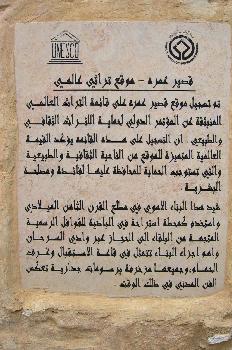 UNESCO
قصير عمره - موقع تراثي عالمي
تم تسجيل موقع قصير عمره على قائمة التراث العالمي
المنبثقة عن المؤتمر الدولي لحماية التراث الثقافي
والطبيعي ان التسجيل على هذه القائمه يؤكد القيمة
العالمية المتميزة للموقع من الناحية الثقافية والطبيعية
والتي تستوجب الحماية للمحافظة عليها لفائدة ومصلحة
البشرية
شيد هذا البناء الاموي في مطلع القرن الثامن الميلادي
واستخدم كمحطة استراحة في البادية للقوافل الرسمية
المتجهة من البلقاء الى الحجاز عبر وادي السرحان
واهم اجزاء البناء تتمثل في قاعة الاستقبال وغرف
الحمام وجميعها مزخرفة برسومات جدارية تعكس
الفن المدني في ذلك الوقت